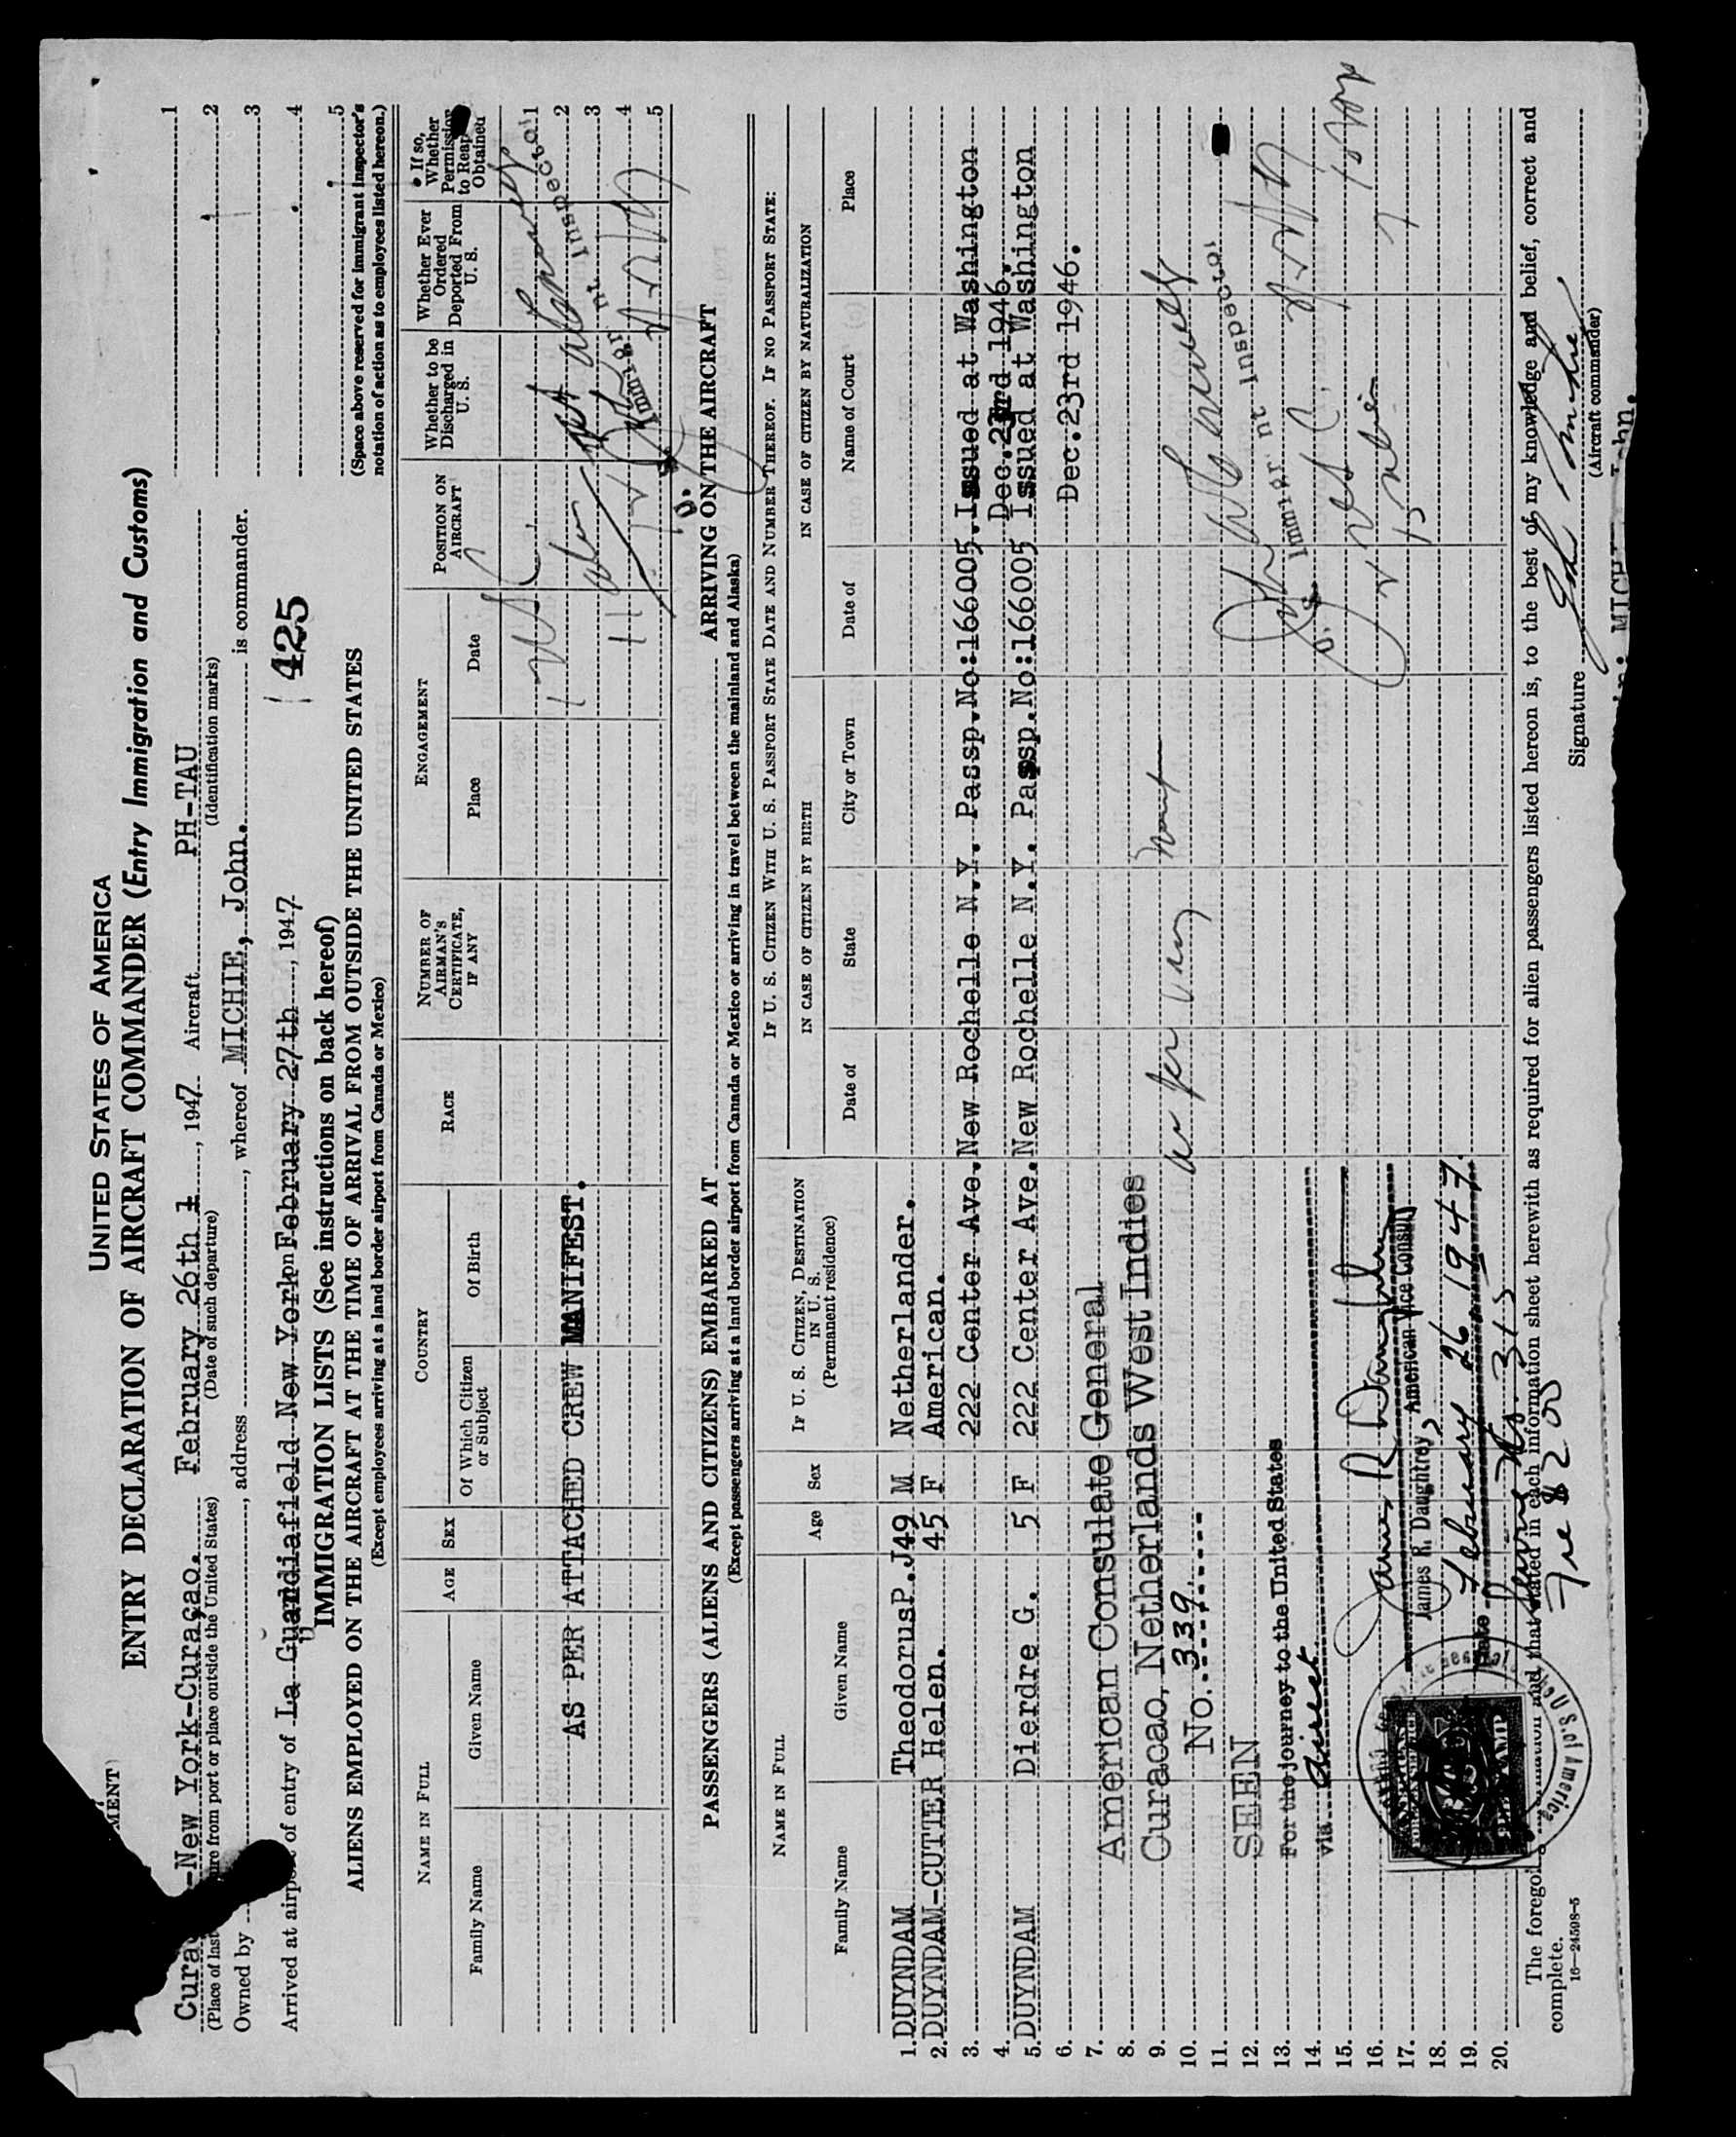 UNITED STATES OF AMERICA
ENTRY DECLARATION OF AIRCRAFT COMMANDER (Entry Immigration and Customs)
-New York-Curaçao. February 26th 1, 1947 Aircraft PH-TAU
(Date of such departure) (Identification marks)
port or place outside the United States)
Owned by , address , whereof MICHIE, John. is commander.
Arrived at airport of entry of La Guardiafield New York on February 27th, 1947
1425
1
2
3
4
5
(Space above reserved for immigrant inspector's
notation of action as to employees listed hereon.)
IMMIGRATION LISTS (See instructions on back hereof)
ALIENS EMPLOYED ON THE AIRCRAFT AT THE TIME OF ARRIVAL FROM OUTSIDE THE UNITED STATES
(Except employees arriving at a land border airport from Canada or Mexico)
NAME IN FULL
Family Name Given Name
AGE
SEX
COUNTRY
Of Which Citizen or Subject
Of Birth
RACE
NUMBER OF AIRMAN'S CERTIFICATE, IF ANY
ENGAGEMENT
Place Date
POSITION ON AIRCRAFT
Whether to be Discharged in U. S.
Whether Ever Ordered Deported From U. S.
If so, Whether Permission to Reap Obtained
AS PER ATTACHED CREW MANIFEST.
1
2
3
4
5
U. S. Immigrant Inspector
PASSENGERS (ALIENS AND CITIZENS) EMBARKED AT ARRIVING ON THE AIRCRAFT
(Except passengers arriving at a land border airport from Canada or Mexico or arriving in travel between the mainland and Alaska)
NAME IN FULL
Family Name Given Name
Age
Sex
IF U. S. CITIZEN, DESTINATION IN U. S.
(Permanent residence)
IF U. S. CITIZEN WITH U. S. PASSPORT STATE DATE AND NUMBER THEREOF. IF NO PASSPORT STATE:
IN CASE OF CITIZEN BY BIRTH
Date of State City or Town
IN CASE OF CITIZEN BY NATURALIZATION
Date of Name of Court Place
1. DUYNDAM TheodorusP.J 49 M Netherlander.
2. DUYNDAM-CUTTER Helen. 45 F American.
3. 222 Center Ave. New Rochelle N.Y. Passp.No:166005. Issued at Washington
4. Dec.23rd 1946.
5. DUYNDAM Dierdre G. 5 F 222 Center Ave. New Rochelle N.Y. Passp.No:166005 Issued at Washington
6. Dec.23rd 1946.
7. American Consulate General
8. Curacao, Netherlands West Indies
9.
10. No. 339
11.
12. SEEN
13. For the journey to the United States
14. via direct
15.
16. James R Daughtrey
17. James R. Daughtrey, American Vice Consul
18. February 26 1947
19. Date
20. Service No. 315
Fee $2 00
U. S. Immigrant Inspector
The foregoing and that stated in each information sheet herewith as required for alien passengers listed hereon is, to the best of my knowledge and belief, correct and
complete.
16—24598-5
Signature John Michie
(Aircraft commander)